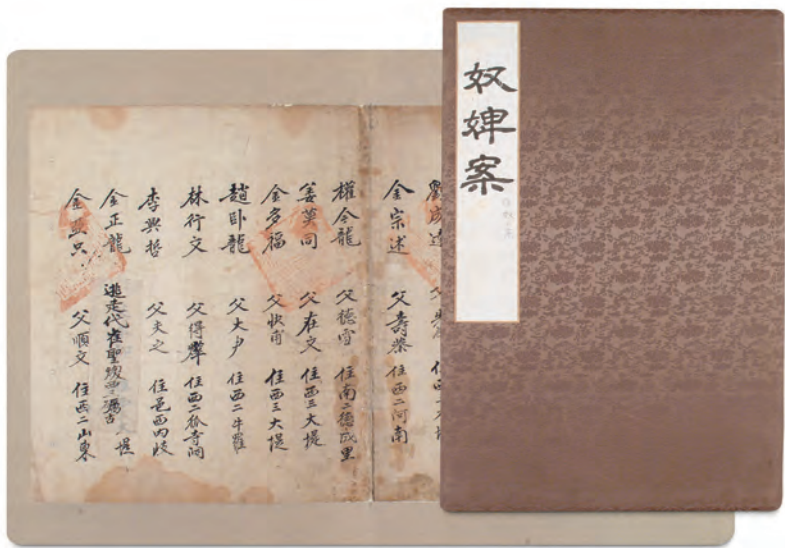 奴婢案
金宗述 父壽榮 住西二河南
權今龍 父德 住南二德成里
姜莫同 父在文 住西三大堤
金多福 父快甫 住西三大堤
趙卧龍 父大 住西二牛羅
林行文 父得 住西二狐寺洞
李興哲 父夫之 住邑西內
金正龍 逃走代崔聖 大堤
金 只 父順文 住西二山東